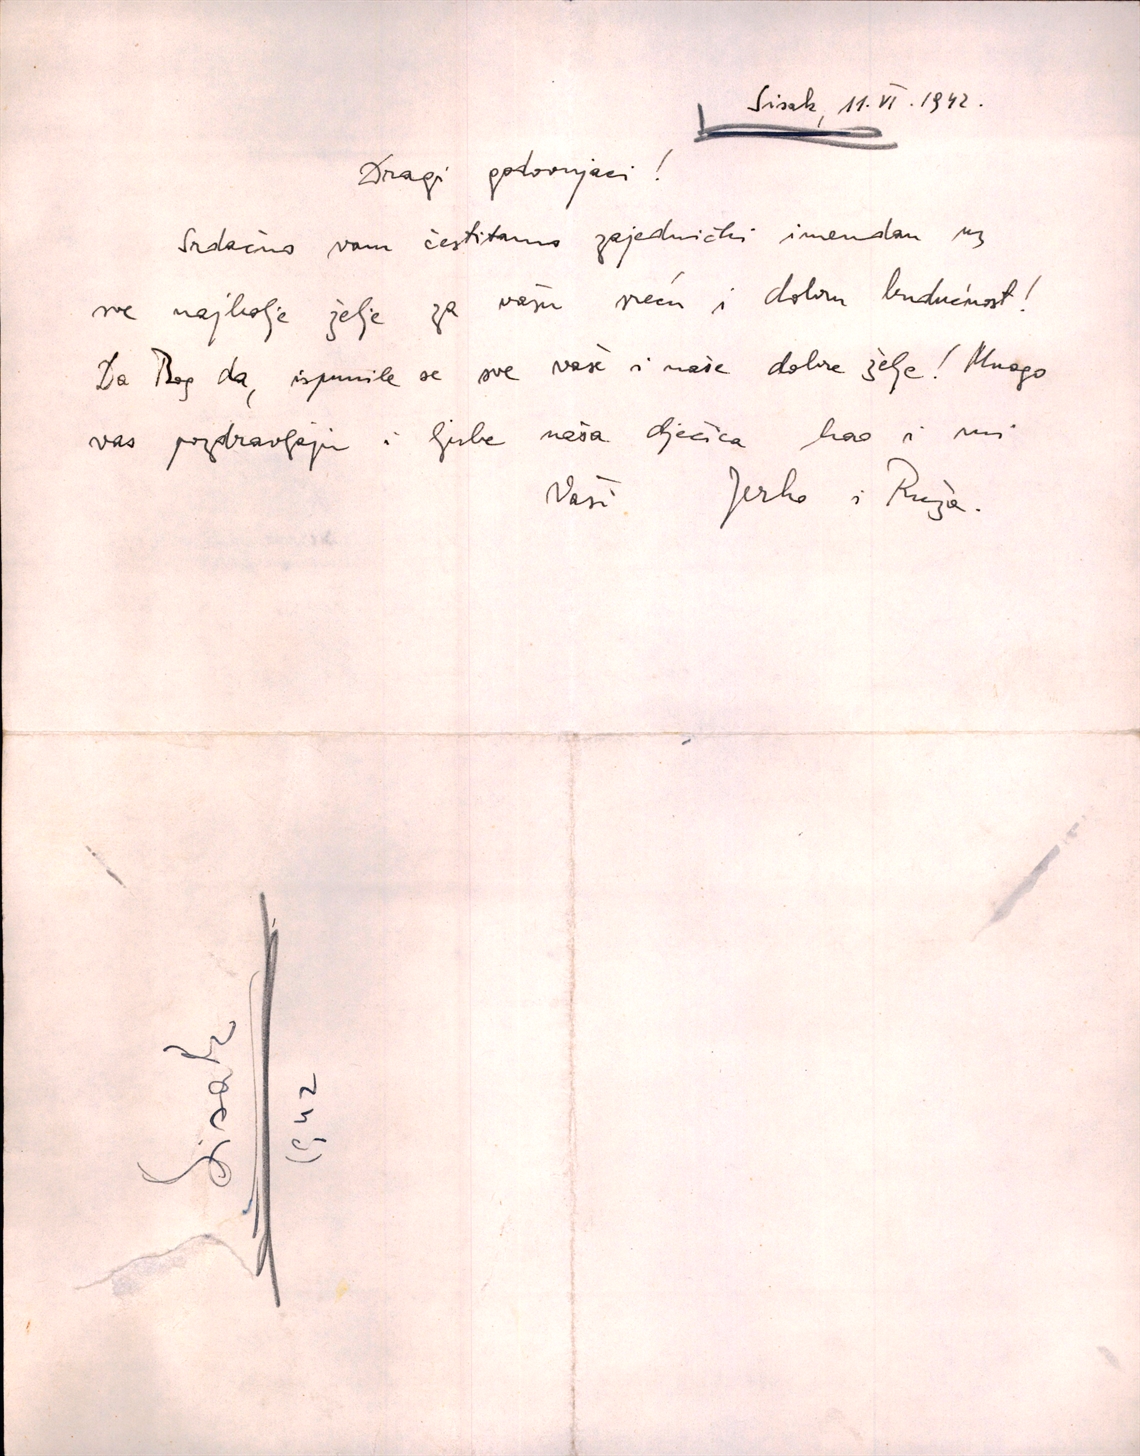 Sisak, 11. VI. 1942.
Dragi godovnjaci!
Srdačno vam čestitamo zajednički imendan uz
sve najbolje želje za vašu sreću i dobru budućnost!
Da Bog da, ispunile se sve vaše i naše dobre želje! Mnogo
vas pozdravljaju i ljube naša dječica kao i mi
Vaši Jerko i Ruža.
Sisak
1942